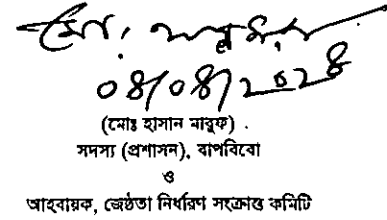 মো:
০৪/০৪/২০২৪
(মোঃ হাসান মারুফ)
সদস্য (প্রশাসন), বাপবিবো
ও
আহবায়ক, জেষ্ঠতা নির্ধারণ সংক্রান্ত কমিটি